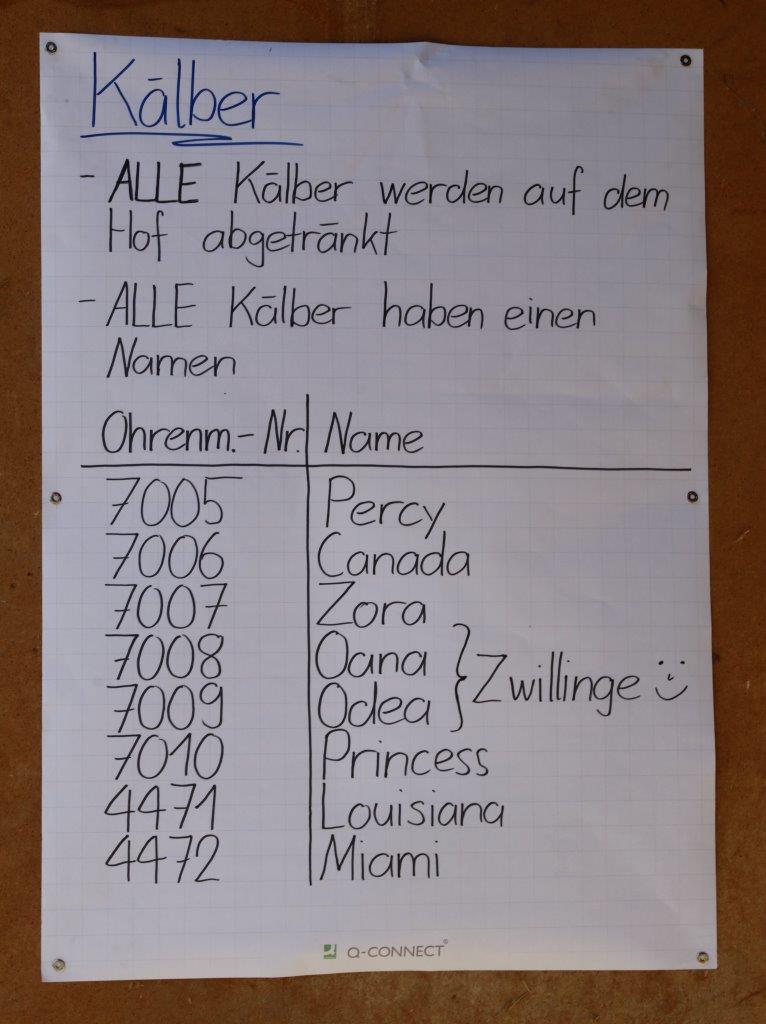 Kälber
- ALLE Kälber werden auf dem
Hof abgetränkt
- ALLE Kälber haben einen
Namen
Ohrenm.- Nr. Name
7005 Percy
7006 Canada
7007 Zora
7008 Oana
7009 Odea } Zwillinge
7010 Princess
4471 Louisiana
4472 Miami
Q-CONNECT®